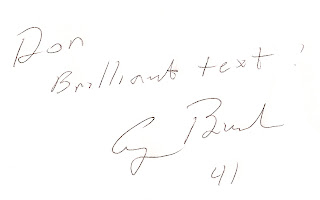 Don
Brilliant text!
G Bush
41